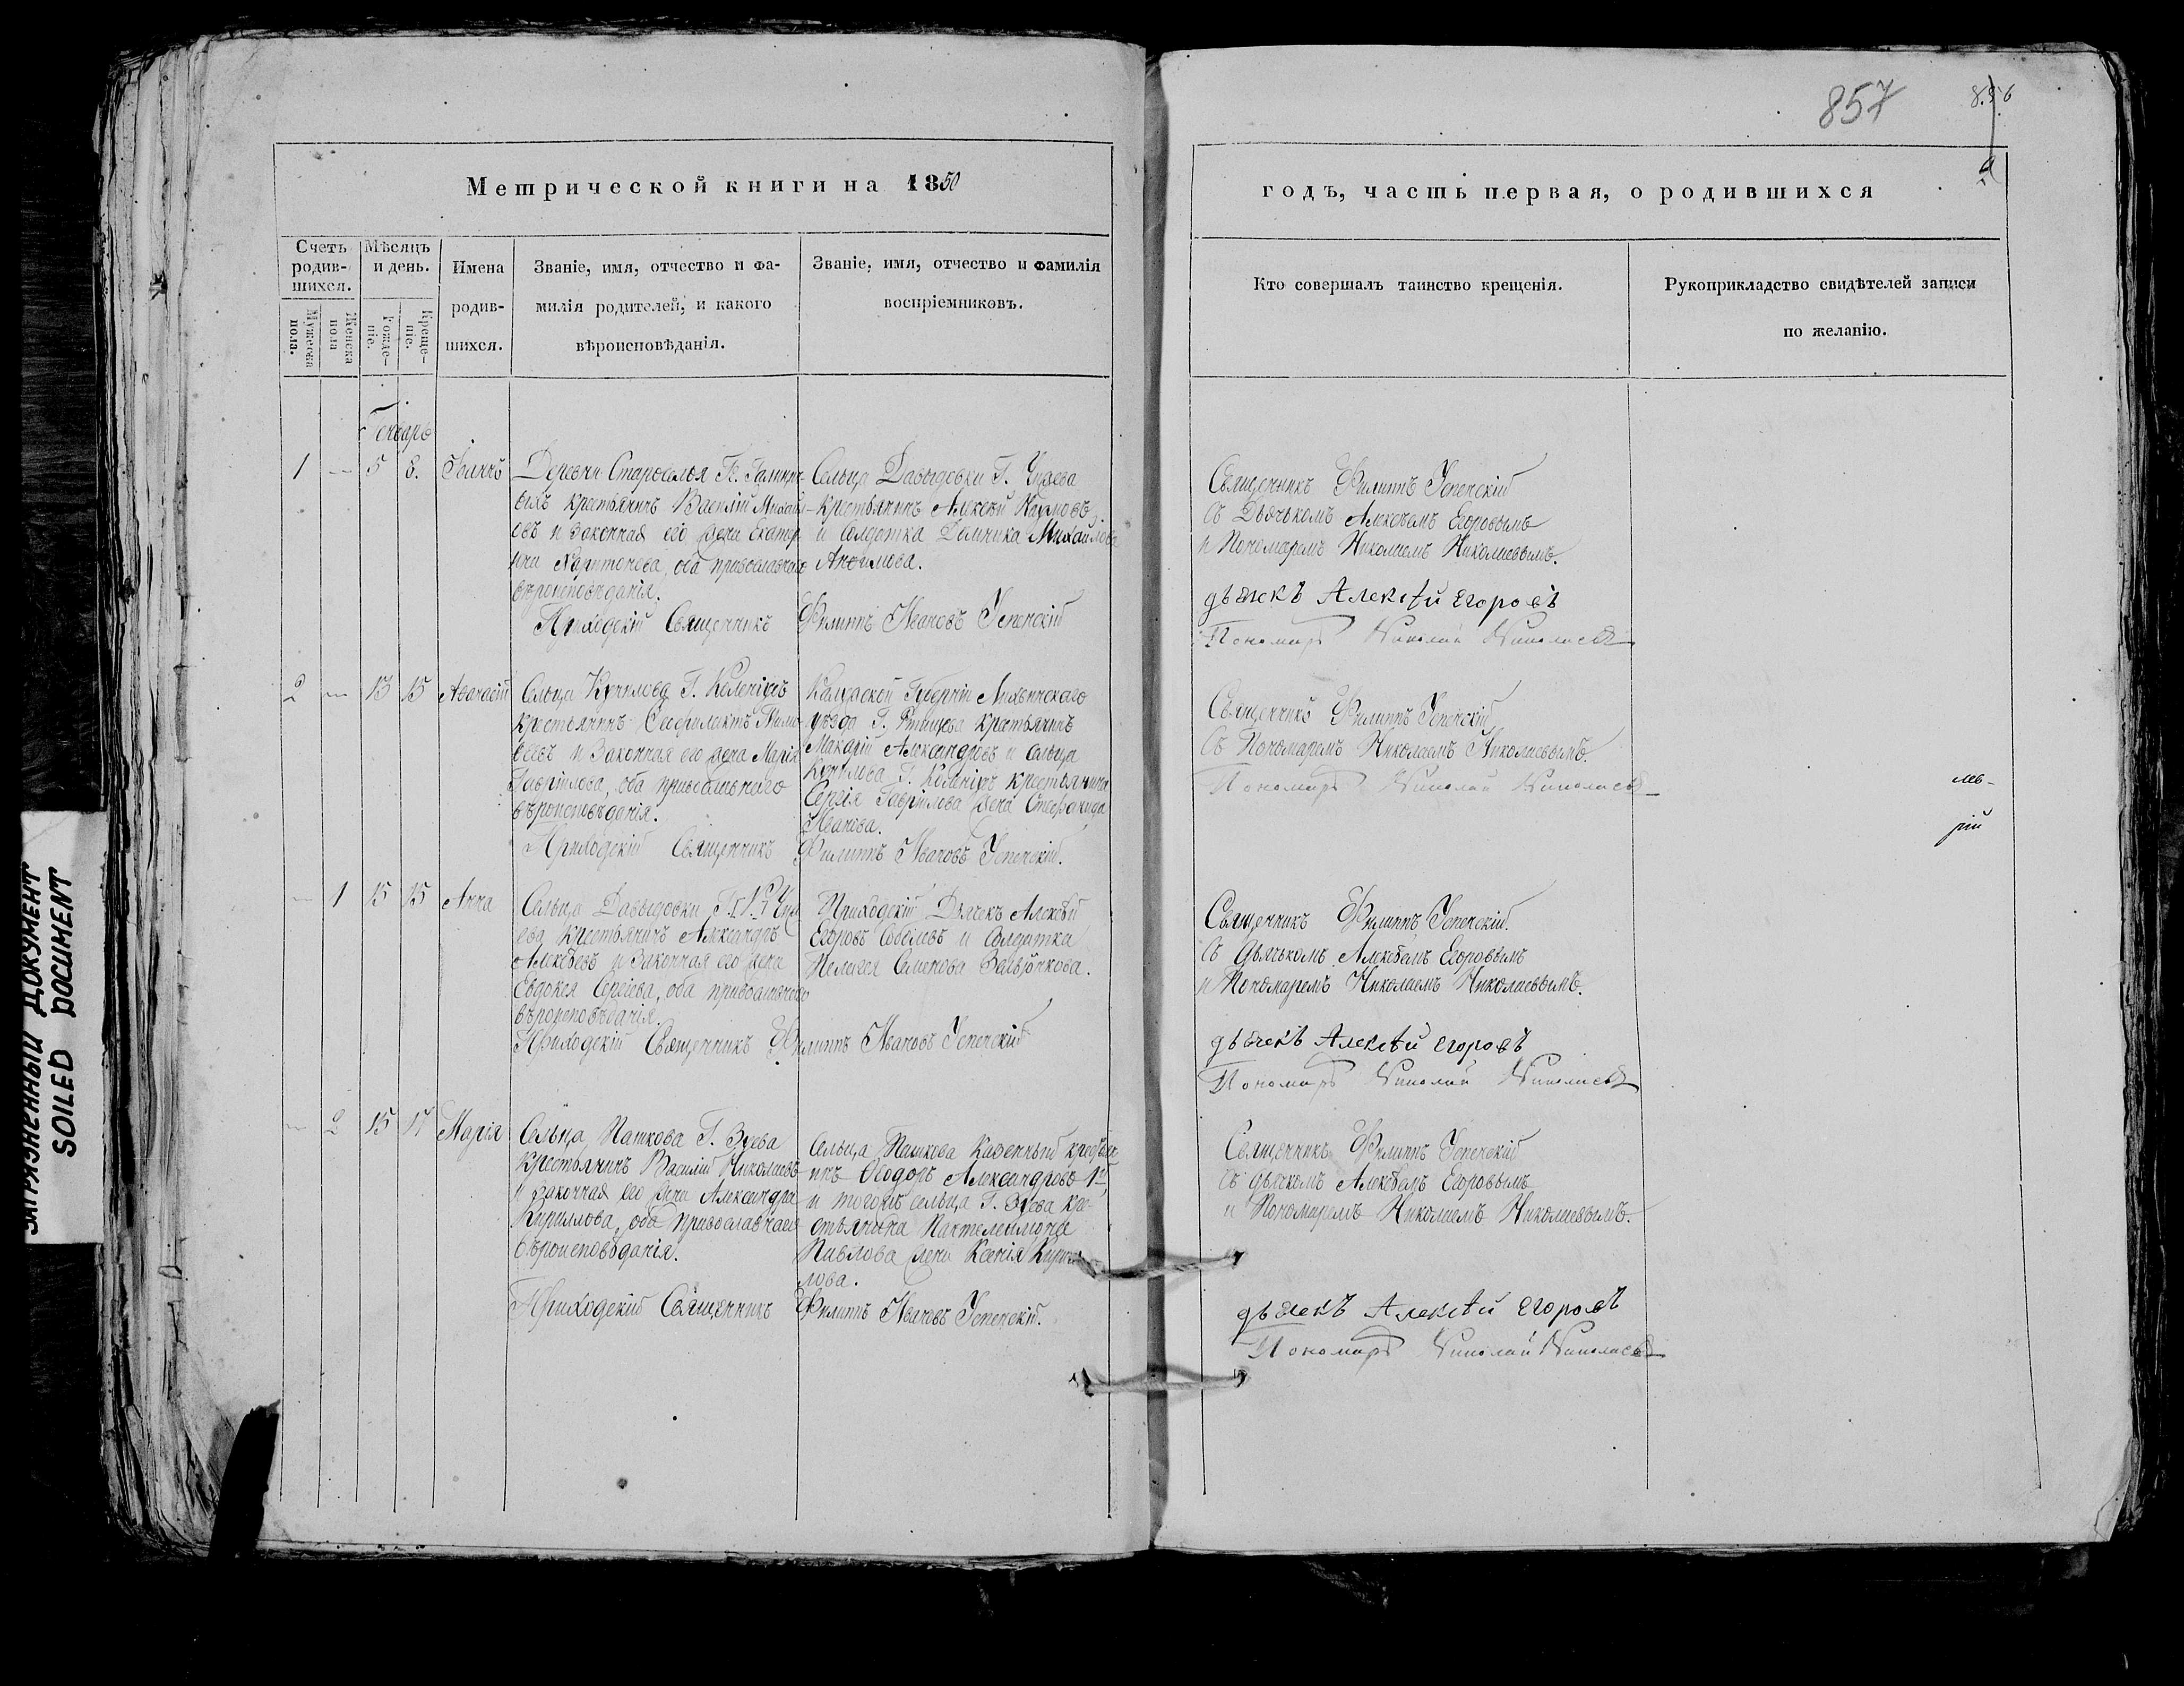 857
856
Метрической книги на 1850
годъ, часть первая, о родившихся
Счетъ родив-шихся.
Мужеска пола.
Женска пола
Мѣсяцъ и день.
Рожде-ніе.
Креще-ніе.
Имена родив-шихся.
Званіе, имя, отчество и фа-
милія родителей, и какого
вѣроисповѣданія.
Званіе, имя, отчество и фамилія
воспріемниковъ.
Кто совершалъ таинство крещенія.
Рукоприкладство свидѣтелей записи
по желанію.
Генварь
1 — 5 8.
Деревни Староселья Г.
выхъ крестьянинъ Василій Михай
овъ и законная его жена Екатер
ина Харитонова, оба православнаго
вѣроисповѣданія.
Сельца Давыдовки Г.
крестьянинъ Алексѣй Наумовъ,
и Солдатка Домника Михайлова
Анѳимова.
Приходскій Священникъ Филиппъ Ивановъ Успенскій
Священникъ Филиппъ Успенскій
съ Дьячкомъ Алексѣемъ Егоровымъ
и Пономаремъ Николаемъ Николаевымъ.
дьячекъ Алексѣй Егоровъ
Пономарь Николай Николаевъ
2 — 13 15 Аѳанасій
Сельца Г.
крестьянинъ
и Законная его жена Марія
Гаврилова, оба православнаго
вѣроисповѣданія.
Калужской Губерніи Лихвинскаго
уѣзда Г. крестьянинъ
Макарій Александровъ и сельца
Г. крестьянина
Сергія Гаврилова жена Стефанида
Иванова.
Приходскій Священникъ Филиппъ Ивановъ Успенскій.
Священникъ Филиппъ Успенскій
съ Пономаремъ Николаемъ Николаевымъ.
Пономарь Николай Николаевъ
рій
— 1 15 15 Анна
Сельца Давыдовки
ева крестьянинъ Александръ
Алексѣевъ и Законная его жена
Евдокея Сергіева, оба православнаго
вѣроисповѣданія.
Приходскій Дьячекъ Алексѣй
Егоровъ Соболевъ и Солдатка
Пелагея Семенова
Приходскій Священникъ Филиппъ Ивановъ Успенскій
Священникъ Филиппъ Успенскій.
съ дьячкомъ Алексѣемъ Егоровымъ
и Пономаремъ Николаемъ Николаевымъ.
дьячекъ Алексѣй Егоровъ
Пономарь Николай Николаевъ
— 2 15 17 Марія
Сельца Пашкова Г. Зуева
крестьянинъ Василій Николаевъ
и законная его жена Александра
Кириллова, оба православнаго
вѣроисповѣданія.
Сельца Пашкова Казенный крестья
нинъ Ѳеодоръ Александровъ 1й,
и тогожъ сельца Г. Зуева кре-
стьянина Пантелеимона
Павлова жена Ксенія Кирил
лова.
Приходскій Священникъ Филиппъ Ивановъ Успенскій.
Священникъ Филиппъ Успенскій
съ дьячкомъ Алексѣемъ Егоровымъ
и Пономаремъ Николаемъ Николаевымъ.
дьячекъ Алексѣй Егоровъ
Пономарь Николай Николаевъ
ЗАГРЯЗНЕННЫЙ ДОКУМЕНТ
SOILED DOCUMENT